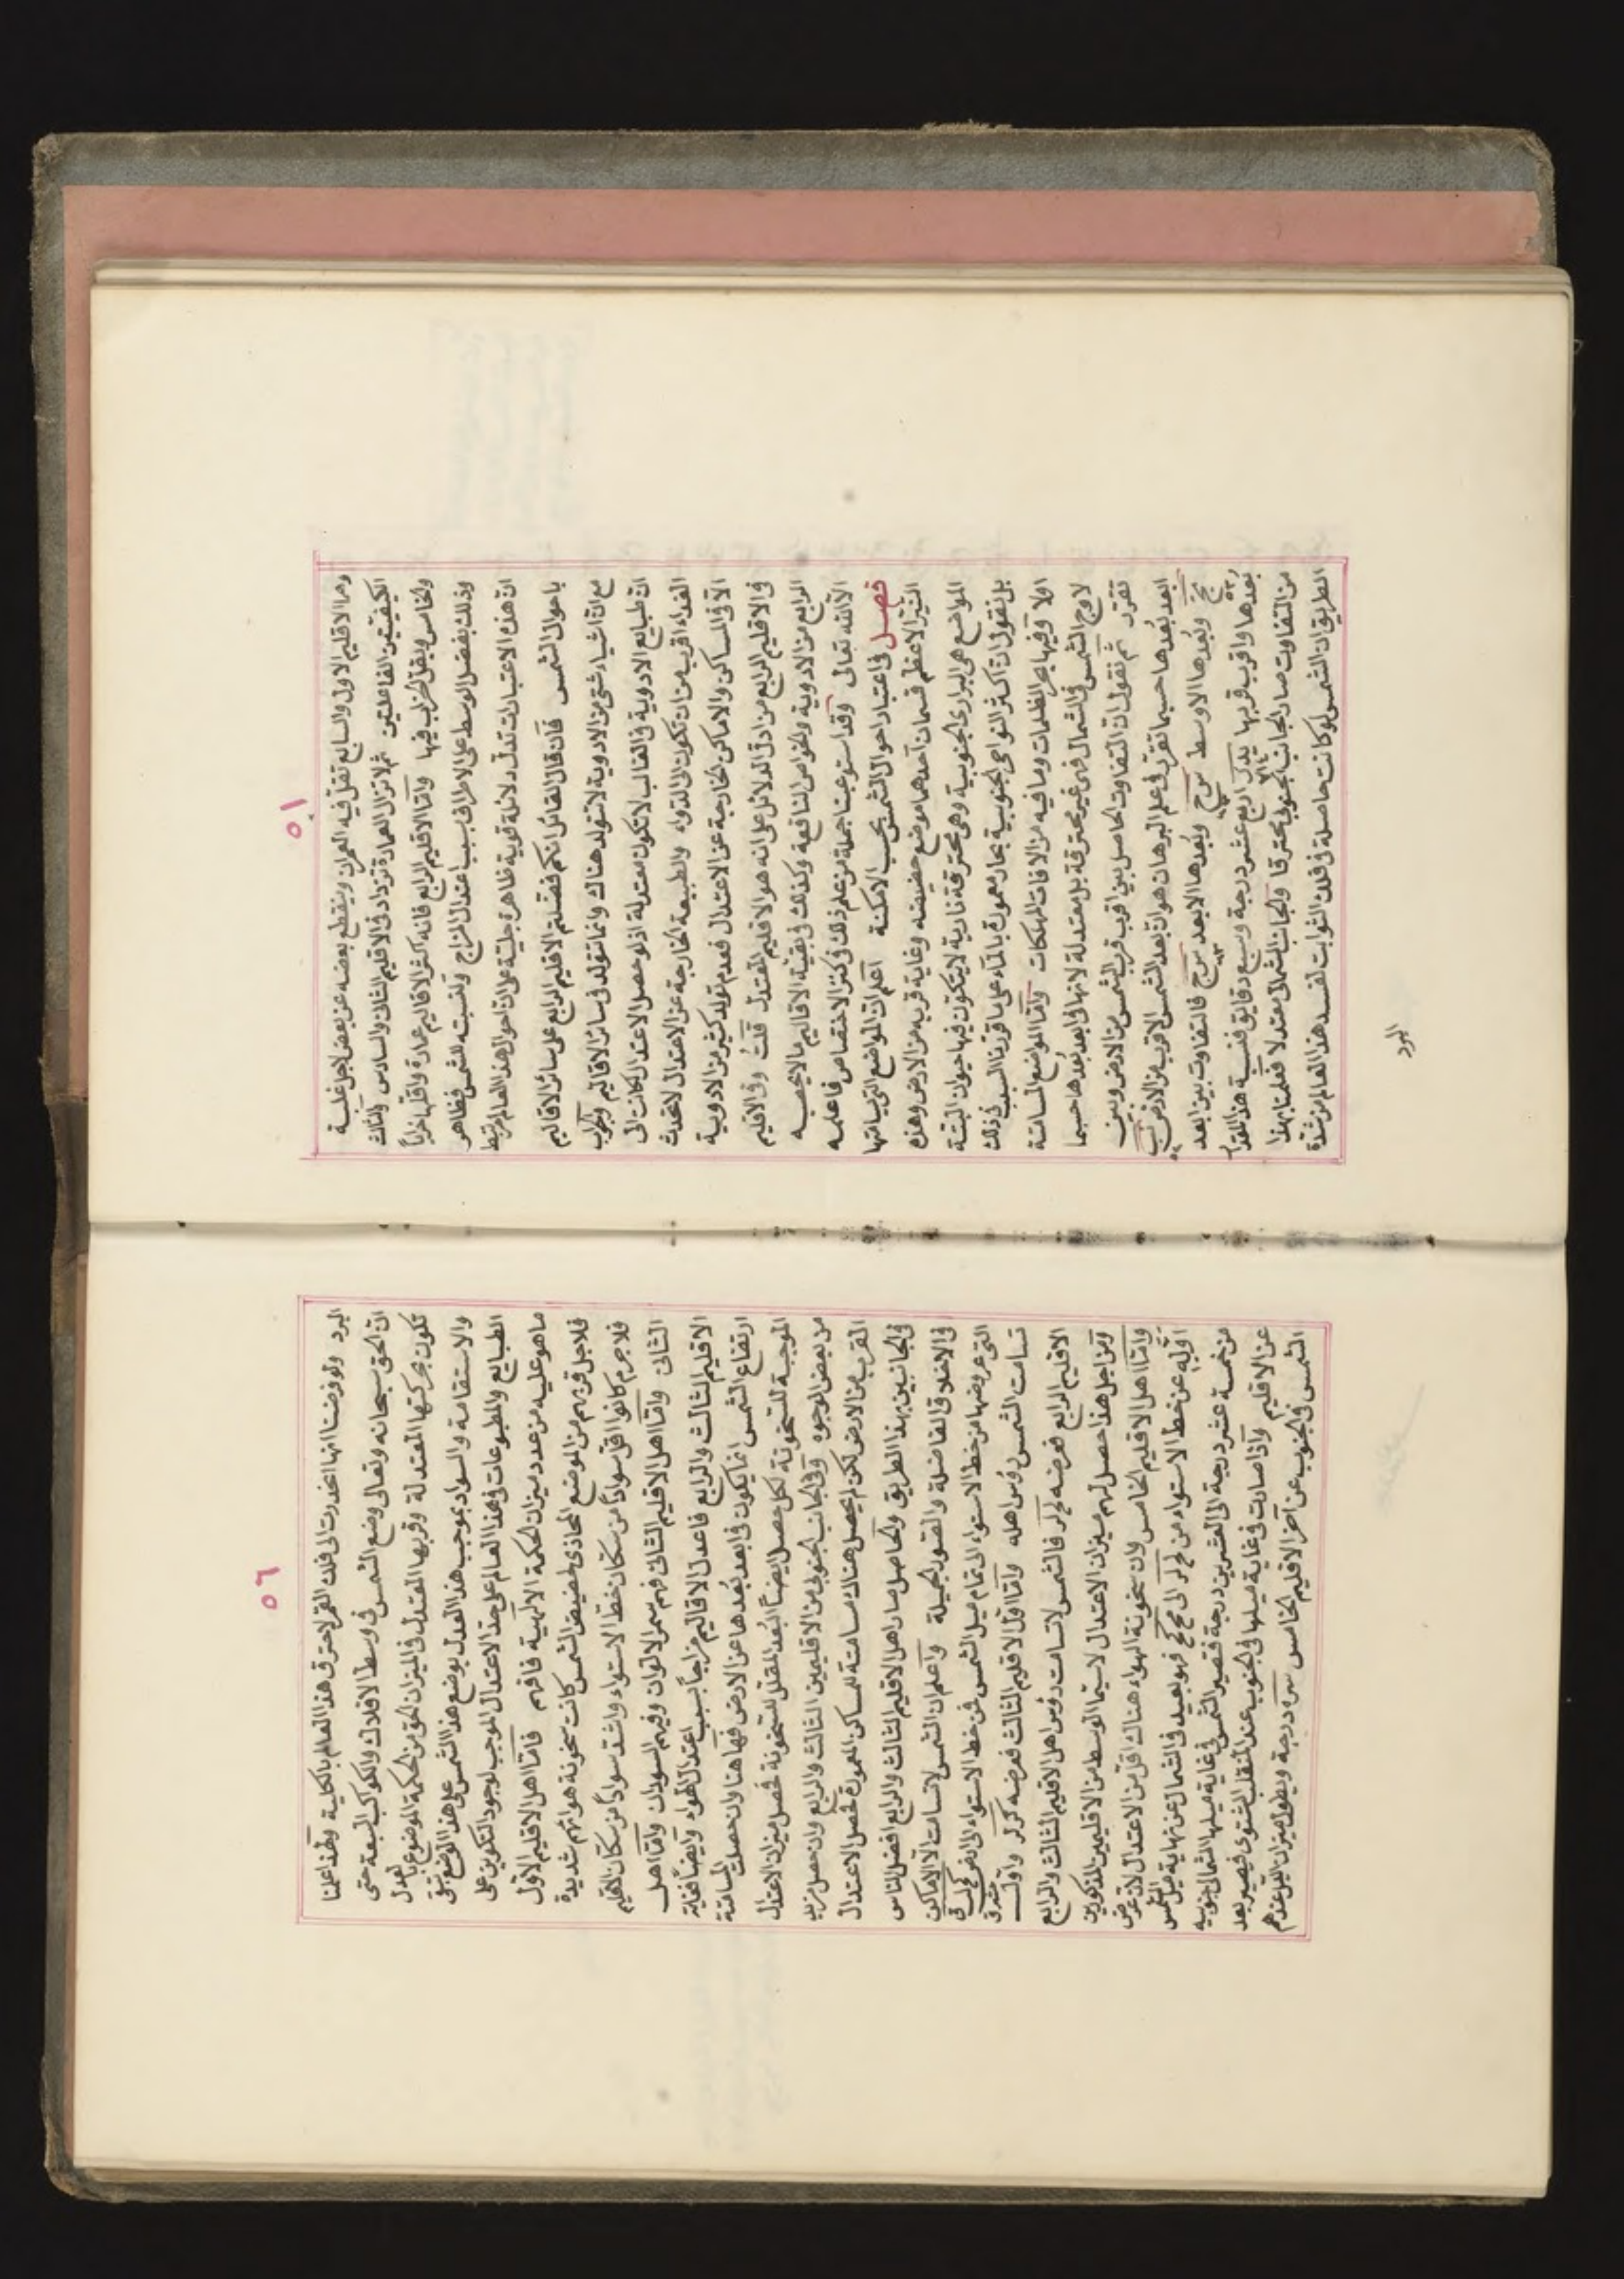 ٥١
وما الاقليم الاول والسابع تقل فيه العمران وينقطع بعضه عن بعض لاجل غلبة
الكيفيتين الفاعلتين ثم لا تزال العمارة تزداد فى الاقليم الثانى والسادس والثالث
والخامس ويقل الخراب فيها وامّا الاقليم الرابع فانه اكثر الاقاليم عمارة واقلها خراباً
وذلك بفضل الوسط على الاطراف بسبب اعتدال المزاج ولنسبته للشمس فظاهر
انّ هذه الاعتبارات تدلّ دلائل قوية ظاهرة جلية على انّ احوال هذا العالم مرتبط
باحوال الشمس فان قال القائل انكم فضلتم الاقليم الرابع على سائر الاقاليم
مع انّ اشياء شتى من الادوية لا تتولد هناك وانما تتولد فى سائر الاقاليم والجواب
انّ طبايع الادوية فى الغالب لا تكون معتدلة اذ لو حصل الاعتدال لكانت الى
الغذاء اقرب من ان تكون الى الدواء والطبيعة الخارجة عن الاعتدال لا تحدث
الّا فى المساكن والاماكن الخارجة عن الاعتدال فعدم تولد كثير من الادوية
فى الاقليم الرابع من ادلّ الدلائل على انه هو الاقليم المعتدل قلت وفى الاقليم
الرابع من الادوية والخواص النافعة وكذلك فى بقية الاقاليم ما لا يحصيه
الّا الله تعالى وقد استوعبنا جملة من علم ذلك فى كنز الاختصاص فاعلمه
فصل فى اعتبار احوال الشمس بحسب الامكنة اعلم انّ المواضع التى يسامتها
النيّر الاعظم قسمان احدهما موضع حضيضه وغاية قربه من الارض وهذه
المواضع هى البرارى الجنوبية وهى محترقة نارية لا يتكون فيها حيوان البتة
بل نقول انّ اكثر النواحى الجنوبية بحار معمورة بالماء على ما قررنا السبب فى ذلك
اولا وفيها بحر الظلمات وما فيه من الافات المهلكات وامّا الموضع المسامتة
لاوج الشمس فى الشمال فهى غير محترقة بل معتدلة لانها فى ابعد بُعدها حسبما
تقرر ثم نقول انّ التفاوت الحاصل بين اقرب قرب الشمس من الارض وبين
ابعد بُعدها حسبما تقرر فى علم البرهان هو ان بعد الشمس الاقرب من الارض
وبُعدها الاوسط وبُعدها الابعد فالتفاوت بين ابعد
بعدها واقرب قربها اربع عشر درجة وسبع دقائق فنسبة هذا المقدار
من التفاوت صار الجانب الجنوبى محترقا والجانب الشمالى معتدلا فعلمنا بهذا
الطريق انّ الشمس لو كانت حاصلة فى فلك الثوابت لفسد هذا العالم من شدة
البرد
٥٢
البرد ولو فرضنا انها انحدرت الى فلك القمر لاحترق هذا العالم بالكلية ولهذا علمنا
انّ الحق سبحانه وتعالى وضع الشمس فى وسط الافلاك والكواكب السبعة حتى
تكون بحركتها المعتدلة وقربها المعتدل فى الميزان الحق من الحكمة الموضوع بالعدل
والاستقامة والسواد بموجب هذا العدل بوضع هذا الشمس على هذا الوضع تبقى
الطبايع والمطبوعات فى هذا العالم على حدّ الاعتدال الموجب لوجود التكوين على
ما هو عليه من عدد ميزان الحكمة الالهية فافهم فامّا اهل الاقليم الاول
فلاجل قربهم من الموضع المحاذى لحضيض الشمس كانت سخونة هوائهم شديدة
فلا جرم كانوا اقل سواداً من سكان خط الاستواء واشد سواداً من سكان الاقليم
الثانى وامّا اهل الاقليم الثانى فهم سمر الالوان وفيهم السودان وامّا اهل
الاقليم الثالث والرابع فاعدل الاقاليم مزاجاً بسبب اعتدال الهواء وايضاً فغاية
ارتفاع الشمس انما يكون فى ابعد بُعدها عن الارض فهاهنا وان حصلت المسامتة
الموجبة للسخونة لكن حصل ايضاً البُعد المقلل للسخونة فحصل ميزان الاعتدال
من بعض الوجوه وفى الجانب الجنوبى من الاقليمين الثالث والرابع وان حصل مزيد
القرب من الارض لكن لم يحصل هناك مسامتة للمساكن المعمورة فحصل الاعتدال
فى الجانبين بهذا الطريق والحاصل صار اهل الاقليم الثالث والرابع افضل الناس
فى الاخلاق الفاضلة والصور الجميلة واعلم ان الشمس لا تسامت الّا الاماكن
التى عروضها من خط الاستواء الى تمام ميل الشمس فمن خط الاستواء الى
تسامت الشمس رؤس اهله وامّا اقل الاقليم الثالث فعرضه كر لر واول
الاقليم الرابع فعرضه فالشمس لا تسامت رؤس اهل الاقليم الثالث والرابع
ومن اجل هذا حصل لهم ميزان الاعتدال لا سيما الوسط من الاقليمين المذكورين
وامّا اهل الاقليم الخامس وان سخونة الهواء هناك اقل من الاعتدال لان عرض
اوّله عن خط الاستواء من الى فهو بعيد فى الشمال عن نهاية ميل الشمس
من خمسة عشر درجة الى العشرين درجة فتصير الشمس فى غاية ميلها الشمالى جنوبية
عن الاقليم واذا صارت فى غاية ميلها فى الجنوب عند المنقلب الشتوى فيصير بعد
الشمس فى الجنوب عن آخر الاقليم الخامس درجة ويطول ميزان الليل عندهم